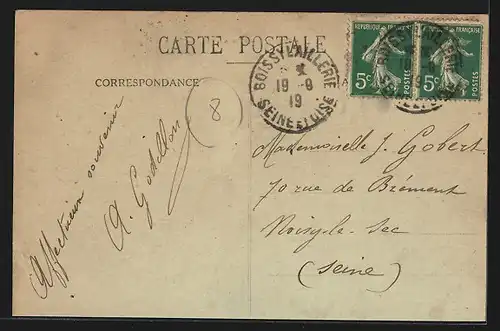 CARTE POSTALE
CORRESPONDANCE
Affectueux souvenir
A. Godillon
8
BOISSY L'AILLERIE
19 -9
19
SEINE ET OISE
5c
POSTES
5c
POSTES
Mademoiselle J. Gobert
70 rue de Brément
Noisy-le-Sec
(Seine)